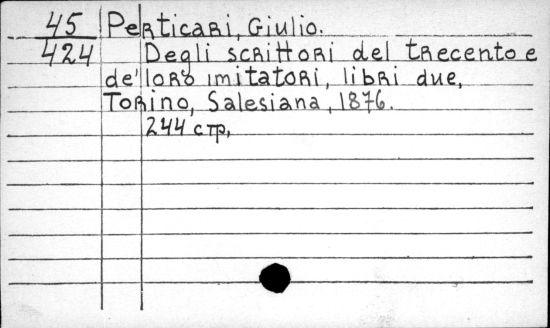 45 Perticari, Giulio.
424 Degli scrittori del trecento e
de' loro imitatori, libri due,
Torino, Salesiana, 1876.
244 стр,